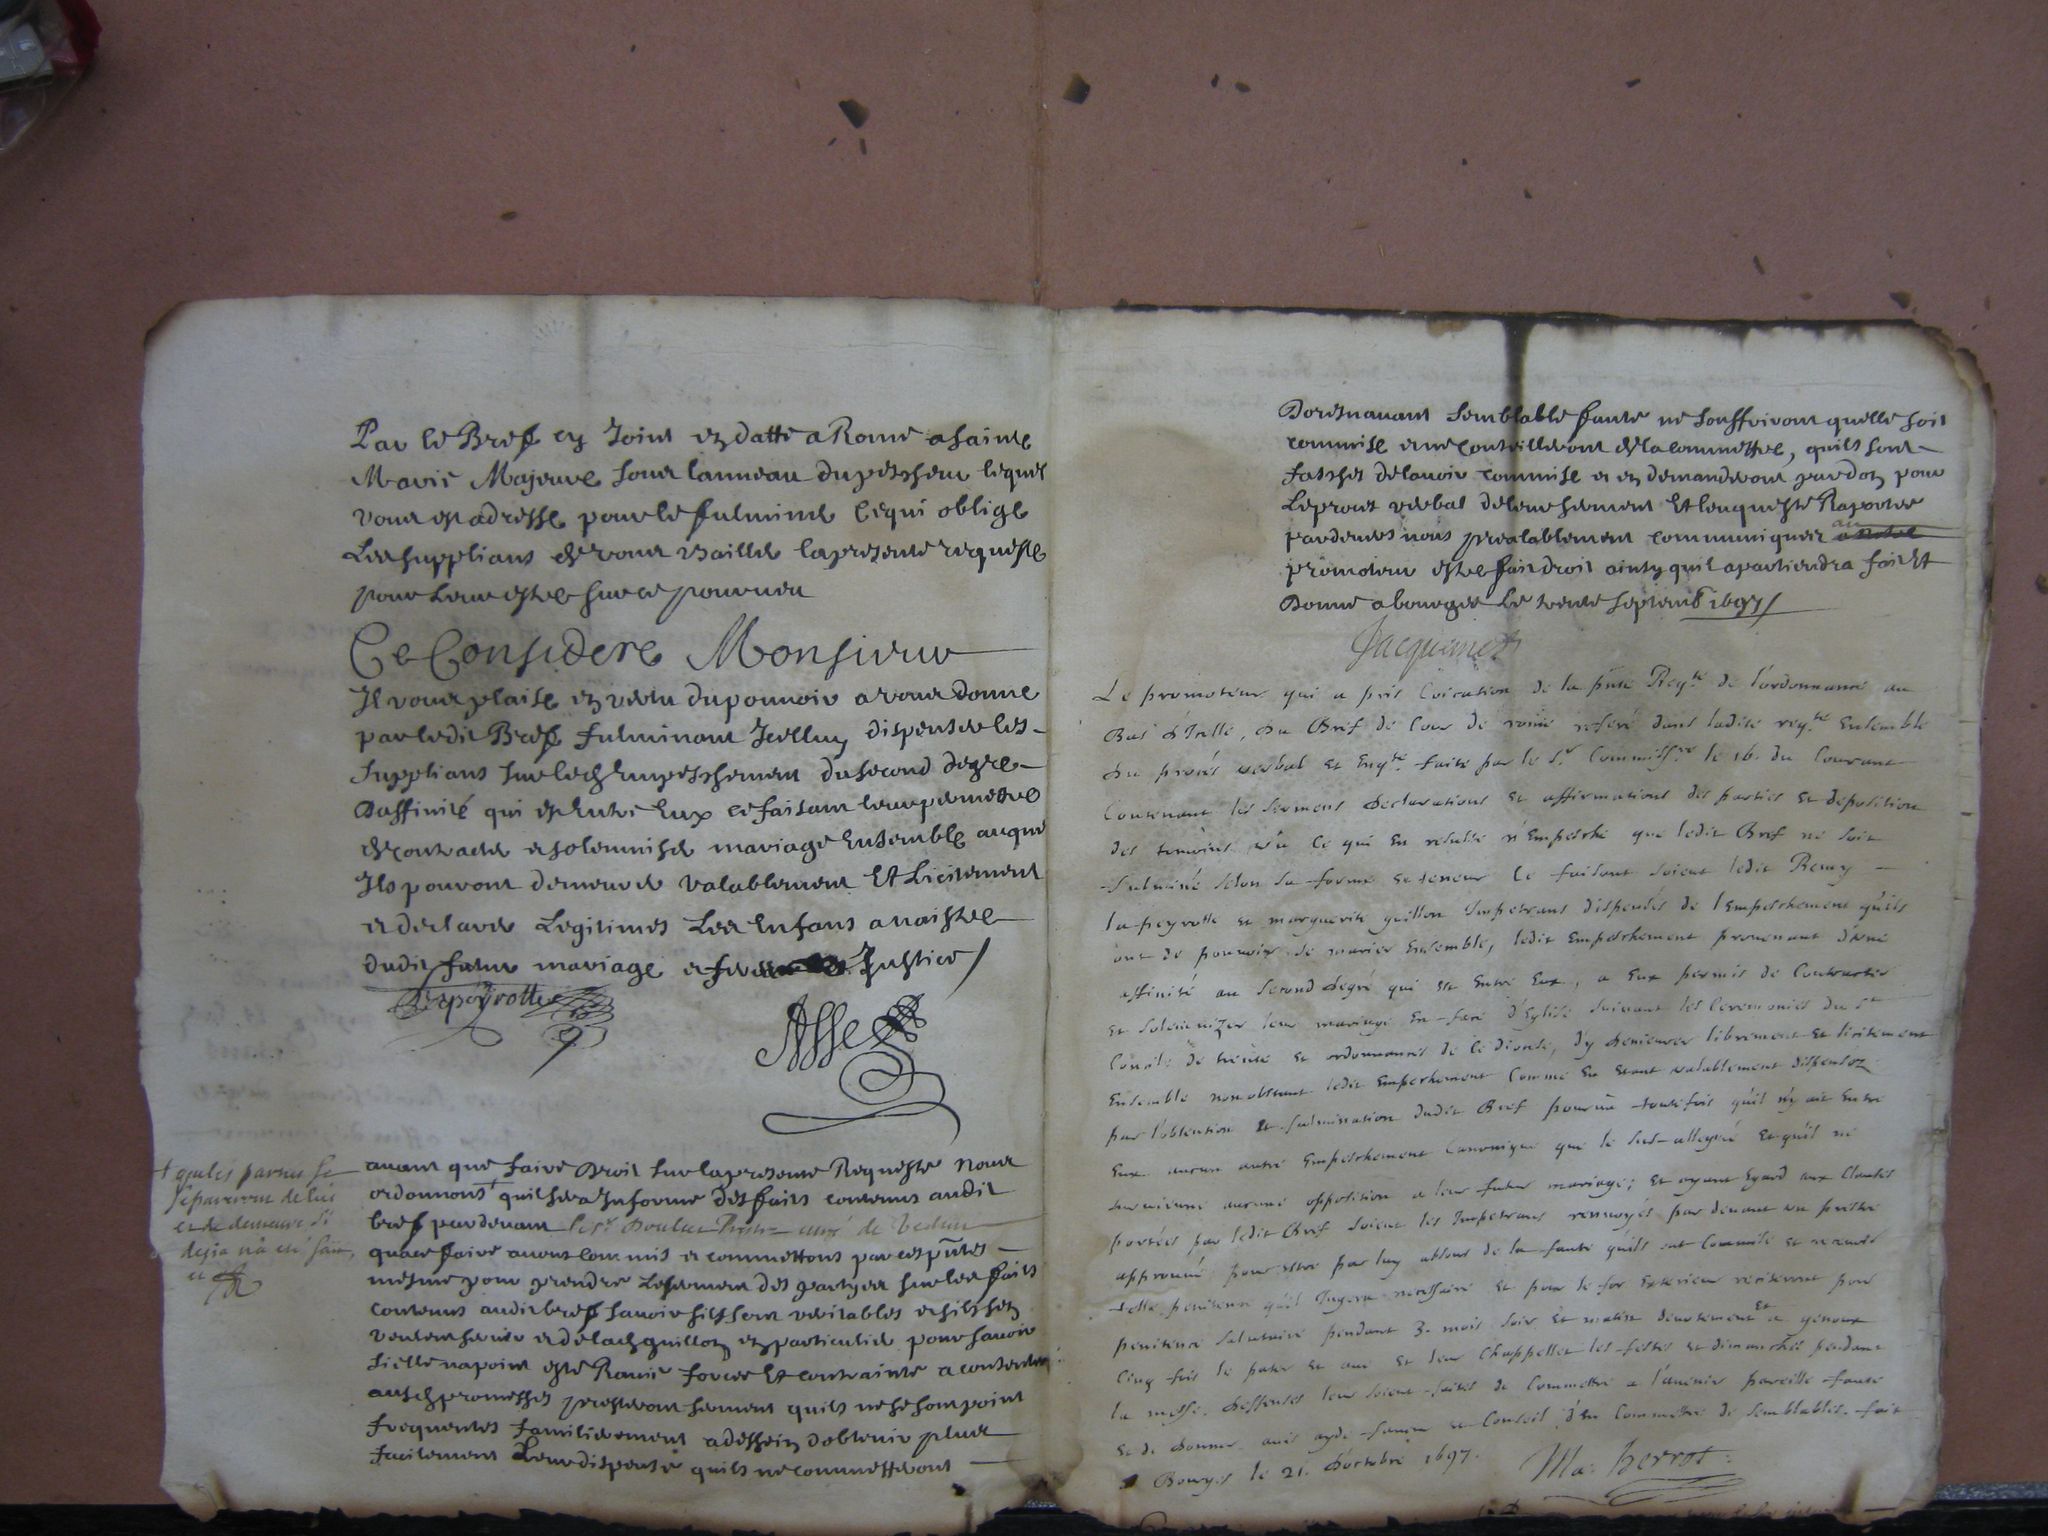 Par le Bref cy Joint en datte a Rome a sainte
Marie Majeure sour lanneau du pescheur lequel
vour est adressé pour le fulminer ce qui oblige
Les supplians de vour Bailler la presente requeste
pour Leur estre sur ce pourueu
Ce Consideré Monsieur
Il vour plaise en vertu du pouuoir a vour donné
par ledit Bref fulminant Icelluy dispenser les
supplians sur led Empeschement du second degré
Daffinité qui est entre Eux ce faisant leur permettre
de contracter et solemniser mariage Ensemble auquel
Ils pouront demeurer valablement Et Licitement
et declarer Legitimes Les Enfans a naistre
dudit futur mariage et ferez Justice
Lapeyrotte
Asse
+ que les parties se
separeront de lieu
et de demeure si
desja n'a eté fait,
et
auant que faire Droit sur la presente Requeste nour
ordonnons + quil sera Informé des faits contenus audit
bref pardeuant le sr. Curé de
qua ce faire auont commis et commettons par ces pntes
mesme pour prendre Le serment des partyes sur les faits
contenus audit bref sauoir sils sont veritables et sils sen
veulent seruir et de lad guillon en particulier pour sauoir
si elle na point esté Rauie forcée Et contrainte a consentir
ausd promesses presteront serment quils ne se sont point
frequentes familierement a dessein dobtenir plus
facilement Leur dispense quils ne commetteront
Doresnauant semblable faute ne souffriront quelle soit
commise et ne conseilleront de la commettre, quils sont
faschés de lauoir commise et en demanderont pardon pour
Le proces verbal de leur serment Et lenqueste Raportée
pardeuers nous prealablement communiquer au
promoteur estre fait droit ainsy quil apartiendra fait Et
Donné a bourges Le trente septemb 1697
Jacquemet
Le promoteur qui a pris Coication de la pnte Reqte. de l'ordonnance au
Bas d'Icelle, du Bref de Cour de rome referé dans ladite reqte. Ensemble
du procés verbal et Enqte. faite par le Sr. Commissre. le 16. du Courant
Contenant les sermens declarations et affirmations des parties et deposition
des temoins veu ce qui en resulte n'Empesche que ledit Bref ne soit
fulminé selon sa forme et teneur Ce faisant soient ledit Remy
lapeyrotte et marguerite guillon Impetrans dispensés de l'Empeschement qu'ils
ont de pouuoir se marier Ensemble, ledit Empeschement prouenant d'une
affinité au second degré qui est Entre Eux, a Eux permis de Contracter
et solemnizer leur mariage En face d'Eglise suiuant les Ceremonies du St
Concile de trente et ordonnances de ce diocese, d'y demeurer librement et licitement
Ensemble nonobstant ledit Empeschement Comme En Etant valablement dispensez
par l'obtention et fulmination dudit Bref pourueu toutefois qu'il n'y ait Entre
Eux aucun autre Empeschement Canonique que le sus-allegué Et qu'il ne
suruienne aucune opposition a leur futur mariage; Et ayant Egard aux Clauses
portées par ledit Bref soient les Impetrans renuoyés par deuant un prestre
approuué pour estre par luy absous de la faute qu'ils ont Commise et receuoir
telle penitence qu'il Jugera necessaire et pour le for Exterieur reciteront pour
penitence salutaire pendant 3. mois soir Et matin deuotement Et a genoux
Cinq fois le pater et aue et leur Chappellet les festes et dimanches pendant
la messe. deffenses leur soient faites de Commettre a l'auenir pareille faute
et de donner auis ayde faueur et Conseil d'En Commettre de semblables. fait
a Bourges le 21. d'octobre 1697.
Ma: Perrot.